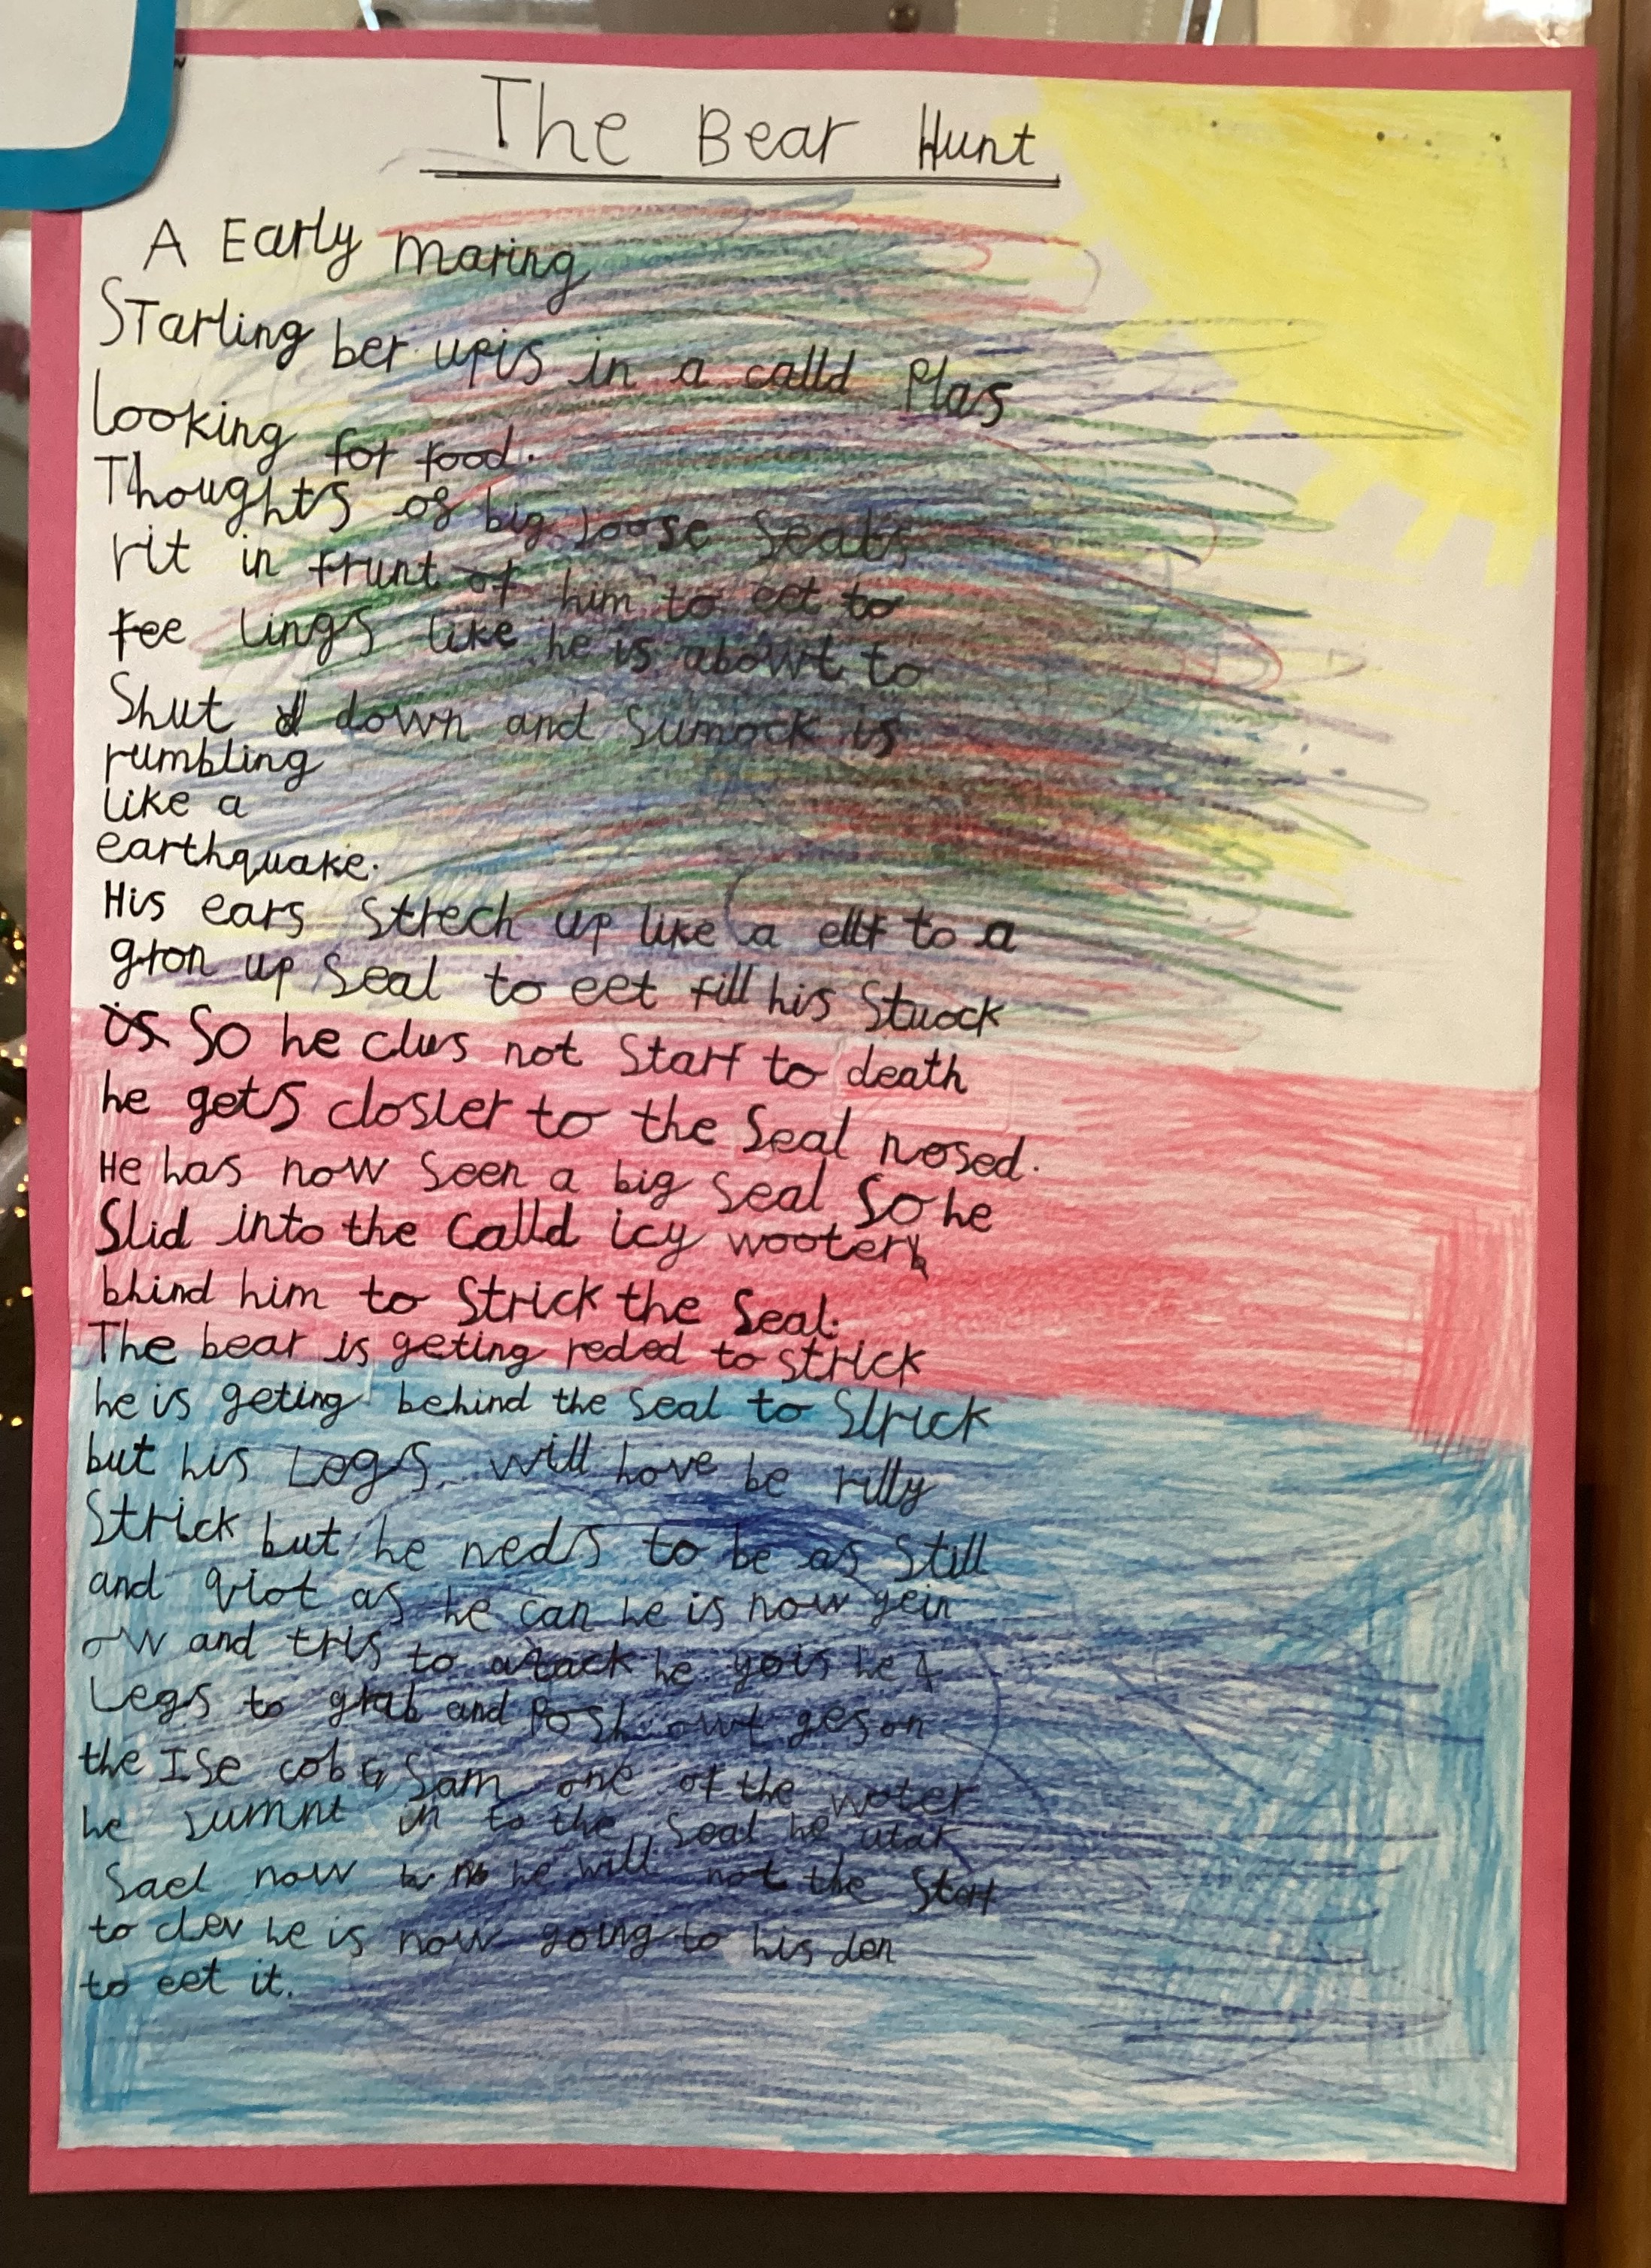 The Bear Hunt
A Early maring
STarling ber upis in a calld Plas
looking for food.
Thoughts of big loose Seals
rit in frunt of him to eet to
fee lings like he is abowt to
Shut down and Sumock is
rumbling
like a
earthquake.
His ears Strech up like a ellf to a
gron up Seal to eet fill his Stuock
is So he clus not Starf to death
he gets closler to the Seal nosed.
He has now Seen a big Seal So he
Slid into the Calld icy wooter
bhind him to Strick the Seal.
The bear is geting reded to strick
he is geting behind the Seal to Strick
but his Legs will hove be rilly
Strick but he neds to be as Still
and qiot as he can he is now gein
ow and tris to atack he yois he 4
Legs to grab and Posh owt ges on
the Ise cob Sam one of the woter
he Jumnt in to the Seal he utak
Sael now he will not the Starf
to clev he is now going to his den
to eet it.